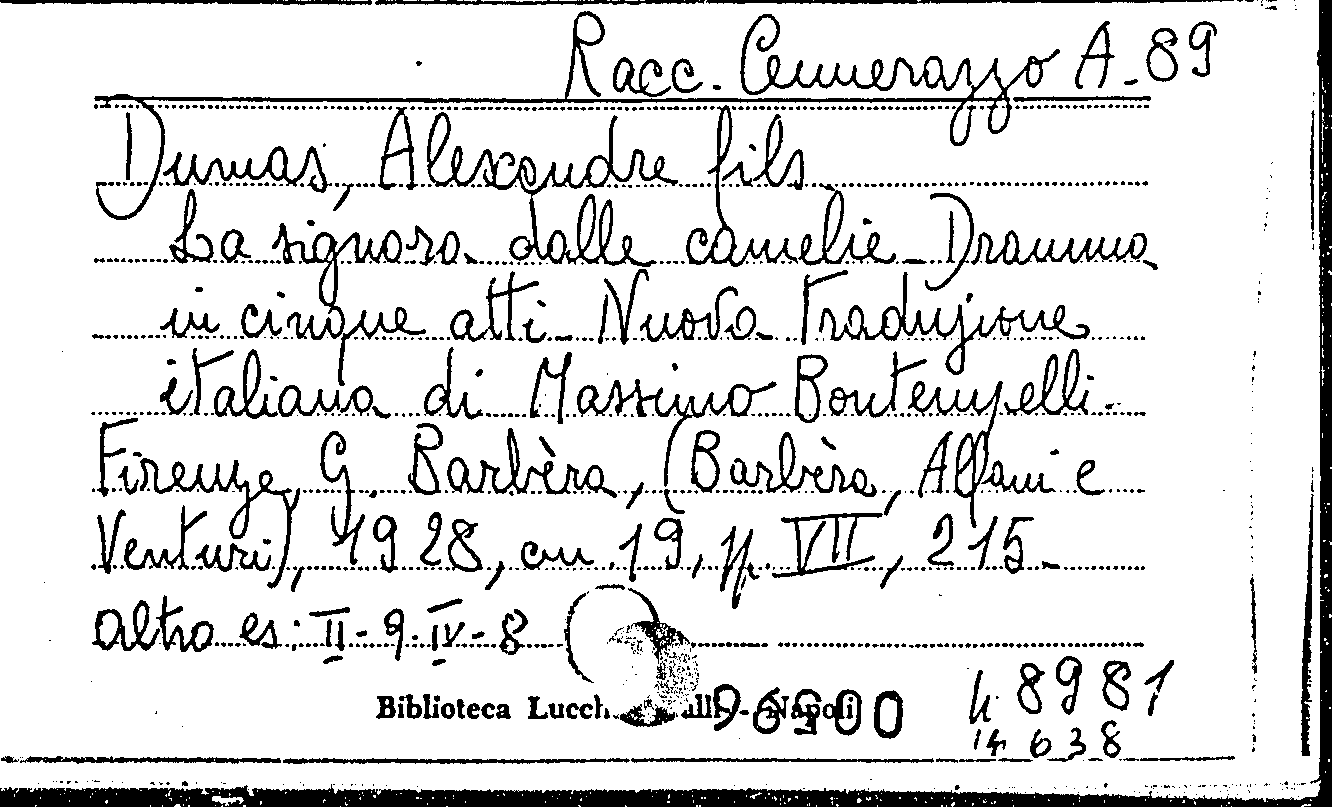 Racc. Cennerazzo A-89
Dumas, Alexandre fils.
La signora dalle camelie - Dramma
in cinque atti - Nuova traduzione
italiana di Massimo Bontempelli.
Firenze, G. Barbèra, (Barbèra, Alfani e
Venturi), 1928, cm. 19, pp. VII, 215.
altro es: II-9-IV-8
Biblioteca - Napoli
48981
14638